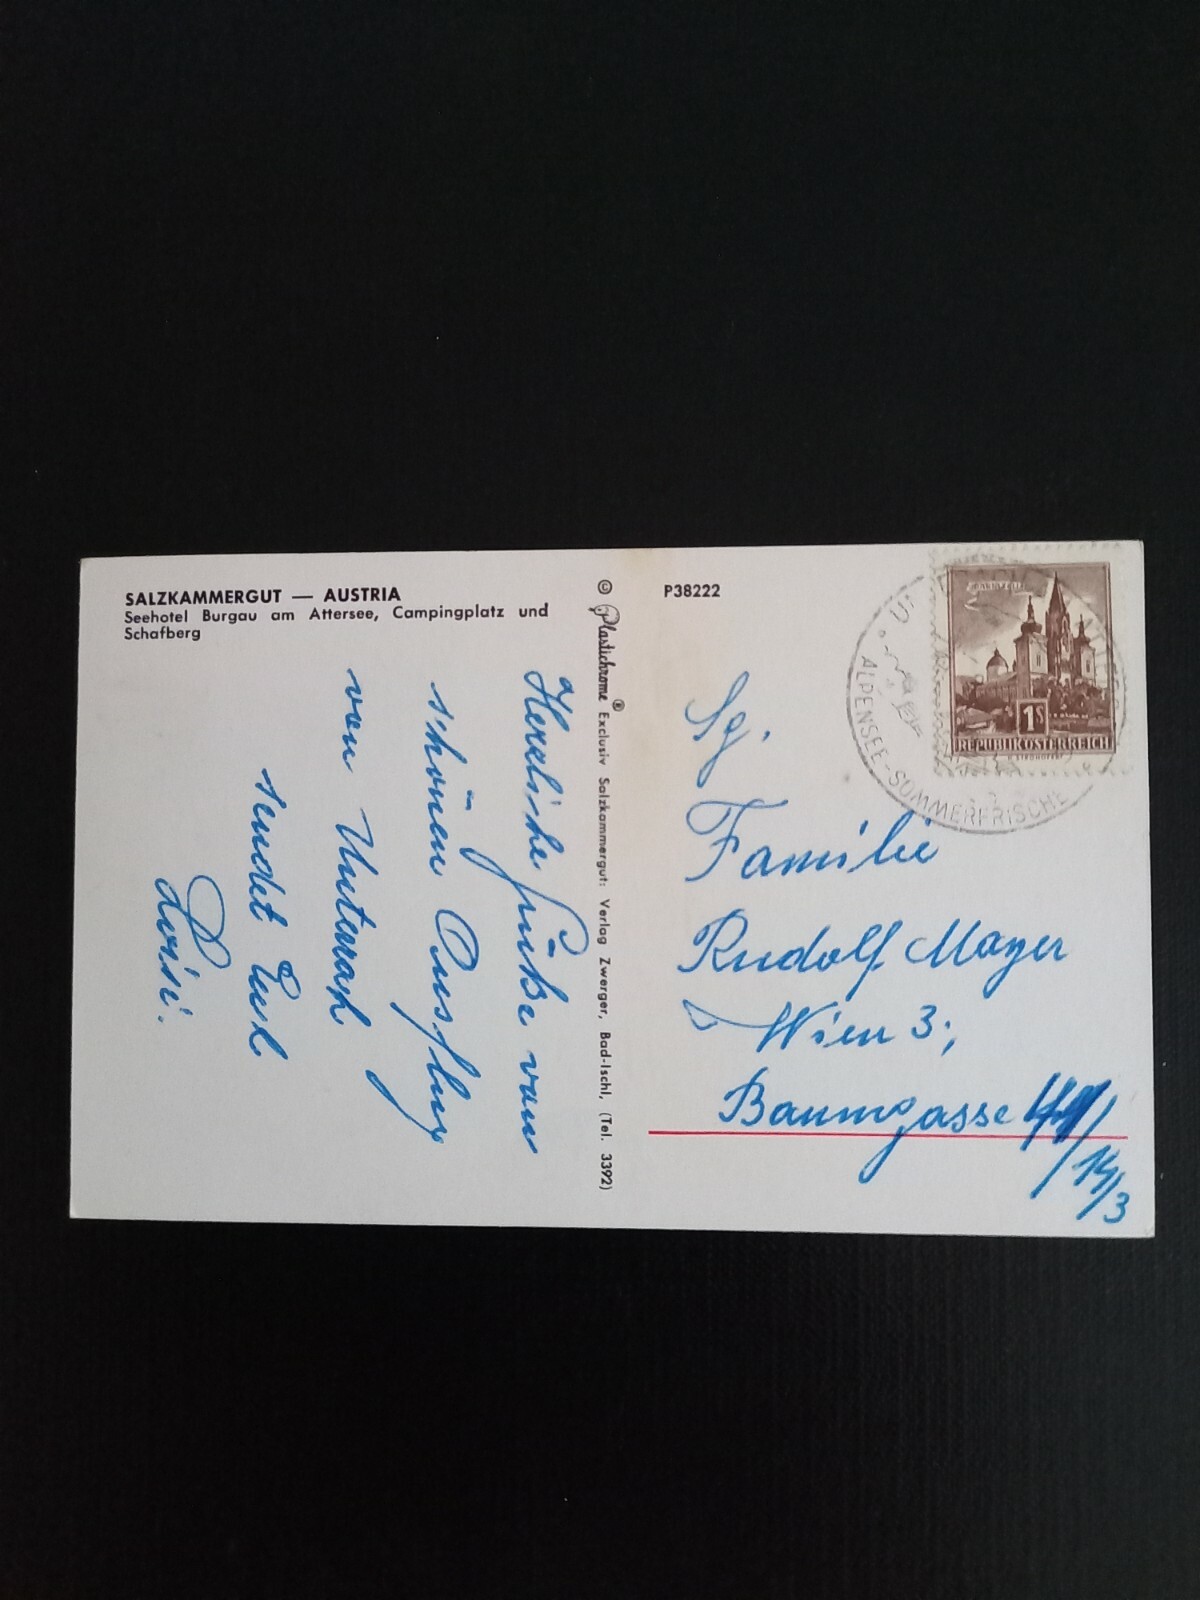 SALZKAMMERGUT — AUSTRIA
Seehotel Burgau am Attersee, Campingplatz und
Schafberg
Herzliche Grüße vom
schönen Ausflug
von Unterach
sendet Euch
Luisi.
© Plastichrome® Exclusiv Salzkammergut: Verlag Zwerger, Bad-Ischl, (Tel. 3392)
P38222
MARIAZELL
1S
REPUBLIK ÖSTERREICH
ALPENSEE-SOMMERFRISCHE
Sg.
Familie
Rudolf Mayer
Wien 3;
Baumgasse
14/3